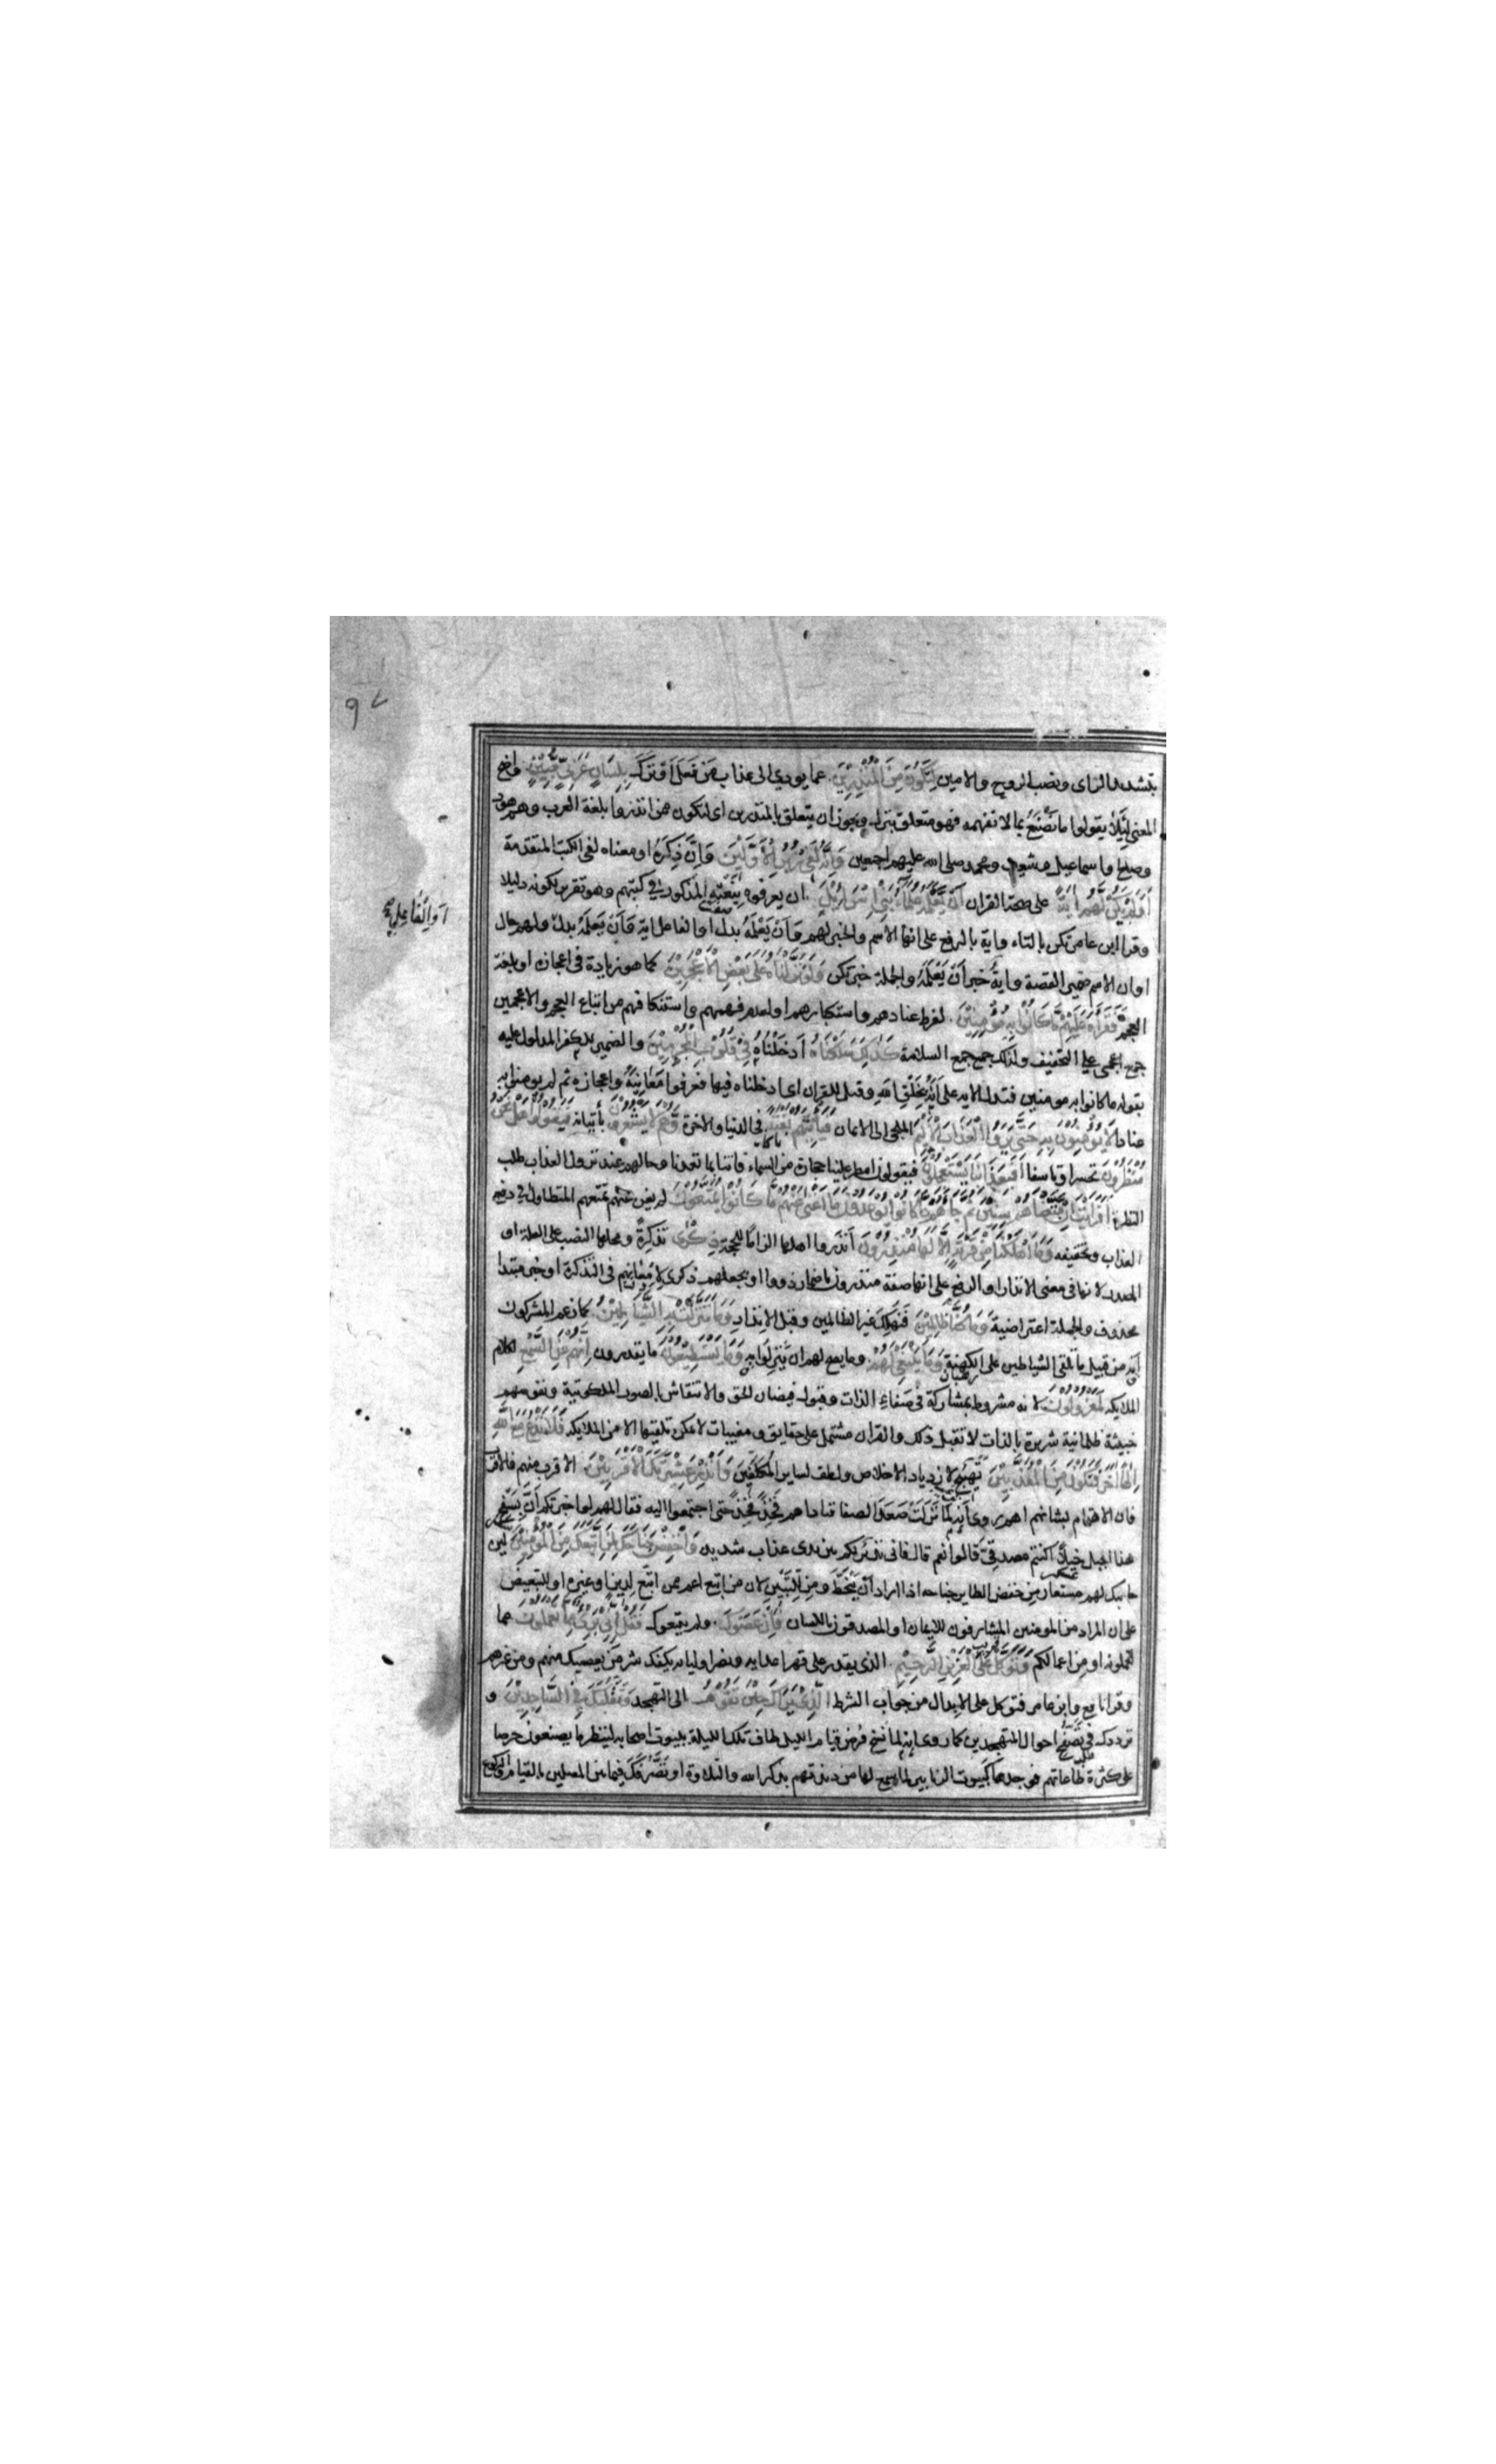 بتشديد الزاى ونصب الروح والامين لِتَكُونَ مِنَ الْمُنْذِرِينَ عما يودي الى عذاب من فعل او ترك بِلِسَانٍ عَرَبِيٍّ مُّبِينٍ واضح
المعنى لِئَلَّا يقولوا ما نَصْنَعُ بما لا نفهمه فهو متعلق بنزل ويجوز ان يتعلق بالمنذرين اى لتكون ممن انذروا بلغة العرب وهم هود
وصلح واسماعيل وشعيب ومحمد صلى الله عليهم اجمعين وَإِنَّهُ لَفِي زُبُرِ الْأَوَّلِينَ وَاِنَّ ذِكرَهُ او معناه لفى الكتب المتقدمة
أَوَلَمْ يَكُنْ لَّهُمْ آيَةً على صحة القران أَنْ يَعْلَمَهُ عُلَمَاءُ بَنِي إِسْرَائِيلَ ان يعرفوه بِنَعْتِهِ المذكور فى كتبهم وهو تقرير لكونه دليلا
وقرا ابن عامر تكن بالتاء واية بالرفع على انها الاسم والخبر لهم وَاَنْ يَعْلَمَهُ بدل او الفاعل اية وَاَنْ يَعلَمَهُ بدل ولهم حال
او ان الاسم ضمير القصة واية خبر أَنْ يَعْلَمَهُ والجملة خبر تكن وَلَوْ نَزَّلْنَاهُ عَلَى بَعْضِ الْأَعْجَمِينَ كما هو زيادة فى اعجازه او بلغة
العجم فَقَرَأَهُ عَلَيْهِمْ مَّا كَانُوا بِهِ مُؤْمِنِينَ لفرط عنادهم واستكبارهم او لعدم فهمهم واستنكافهم من اتباع العجم والاعجمين
جمع اعجمى على التخفيف ولذلك جمع جمع السلامة كَذَلِكَ سَلَكْنَاهُ أدخَلْنَاهُ فِي قُلُوبِ الْمُجْرِمِينَ والضمير للكفر المدلول عليه
بقوله ما كانوا به مومنين فتدل الايه على اَنَّهُ بِخَلْقِ الله وقيل للقران اى ادخلناه فيها فعرفوا مَعَانِيَهُ واعجازه ثم لم يومنوا به
عنادا لَا يُؤْمِنُونَ بِهِ حَتَّى يَرَوُا الْعَذَابَ الْأَلِيمَ الملجى الى الايمان فَيَأْتِيَهُمْ بَغْتَةً فى الدنيا والاخرة وَّهُمْ لَا يَشْعُرُونَ بأتيانه فَيَقُولُوا هَلْ نَحْنُ
مُنْظَرُونَ تحسرا وتاسفا أَفَبِعَذَابِنَا يَسْتَعْجِلُونَ فيقولون امطر علينا حجارة من السماء فاتنا بما تعدنا وحالهم عند نزول العذاب طلب
النظرة أَفَرَأَيْتَ إِنْ مَّتَّعْنَاهُمْ سِنِينَ ثُمَّ جَاءَهُمْ مَّا كَانُوا يُوعَدُونَ مَا أَغْنَى عَنْهُمْ مَّا كَانُوا يُمَتَّعُونَ لم يغن عنهم تمتعهم المتطاول فى دفع
العذاب وتخفيفه وَمَا أَهْلَكْنَا مِنْ قَرْيَةٍ إِلَّا لَهَا مُنْذِرُونَ أنذروا اهلها الزاما للحجة ذِكْرَى تذكِرةً ومحلها النصب على العلة او
المصدر لانها فى معنى الانذار او الرفع على انها صفة منذرون باضمار ذووا او بجعلهم ذكرى لامعانهم فى التذكرة او خبر مبتدا
محذوف والجملة اعتراضية وَمَا كُنَّا ظَالِمِينَ فَنُهلِكَ غير الظالمين وقبل الانذار وَمَا تَنَزَّلَتْ بِهِ الشَّيَاطِينُ كما زعم المشركون
اَنَّهُ من قبيل ما تلقى الشياطين على الكهنة وَمَا يَنْبَغِي لَهُمْ وما يصح لهم ان يَنزِلوا به وَمَا يَسْتَطِيعُونَ ما يقدرون إِنَّهُمْ عَنِ السَّمْعِ لكلام
الملايكة لَمَعْزُولُونَ لانه مشروط بمشاركة فى صَفاءِ الذات وقبول فيضان الحق والانتقاش بالصور الملكوتية ونفوسهم
خبيثة ظلمانية شريرة بالذات لا تقبل ذلك والقران مشتمل على حقايق ومغيبات لا يمكن تلقيها الا من الملايكة فَلَا تَدْعُ مَعَ اللَّهِ
إِلَهًا آخَرَ فَتَكُونَ مِنَ الْمُعَذَّبِينَ تَهْيِيجٌ لازدياد الاخلاص ولطف لساير المُكلَّفِينَ وَأَنْذِرْ عَشِيرَتَكَ الْأَقْرَبِينَ الاقرب منهم فالاقرب
فان الاهتمام بشانهم اهم روى اَنَّهُ لما نَزَلَتْ صَعَدَ الصفا فناداهم فَخِذًا فَخِذًا حتى اجتمعوا اليه فقال لهم لو اخبرتكم أنَّ بسفح
هذا الجبل خيلًا اكنتم مصدقىّ قالوا نعم قال فانى نذير لكم بين يدى عذاب شديد وَاخْفِضْ جَنَاحَكَ لِمَنِ اتَّبَعَكَ مِنَ الْمُؤْمِنِينَ لين
جانبك لهم مستعار مِن خفض الطاير جناحه اذا اراد اَنْ يَنْحَطَّ ومِن لِلتَّبْيِينِ لان من اتبع اعم ممن اتبع لِدِينٍ او غيره او للتبعيض
على ان المراد من المومنين المشارفون للايمان او المصدقون باللسان فَإِنْ عَصَوْكَ ولم يتبعوك فَقُلْ إِنِّي بَرِيءٌ مِّمَّا تَعْمَلُونَ مما
تعملونه او من اعمالكم وَتَوَكَّلْ عَلَى الْعَزِيزِ الرَّحِيمِ الذى يقدر على قهر اعدايه ونصر اوليايه يكفك شر مَن يعصيك منهم ومن غيرهم
وقرا نافع وابن عامر فتوكل على الابدال من جواب الشرط الَّذِي يَرَاكَ حِينَ تَقُومُ الى التهجد وَتَقَلُّبَكَ فِي السَّاجِدِينَ و
ترددك فى تَصَفُّحِ احوال المتهجدين كما روى اِنَّهُ لما نسخ فُرِضَ قيام الليل طاف تلك الليلة ببيوت اصحابه لينظر ما يصنعون حرصا
على كثرة طاعاتهم فوجدها كَبُيوت الزنابير لما سمع لها من دندنتهم بذكر الله والتلاوة او تَصَرُّفَكَ فيما بين المصلين بالقيام والركوع